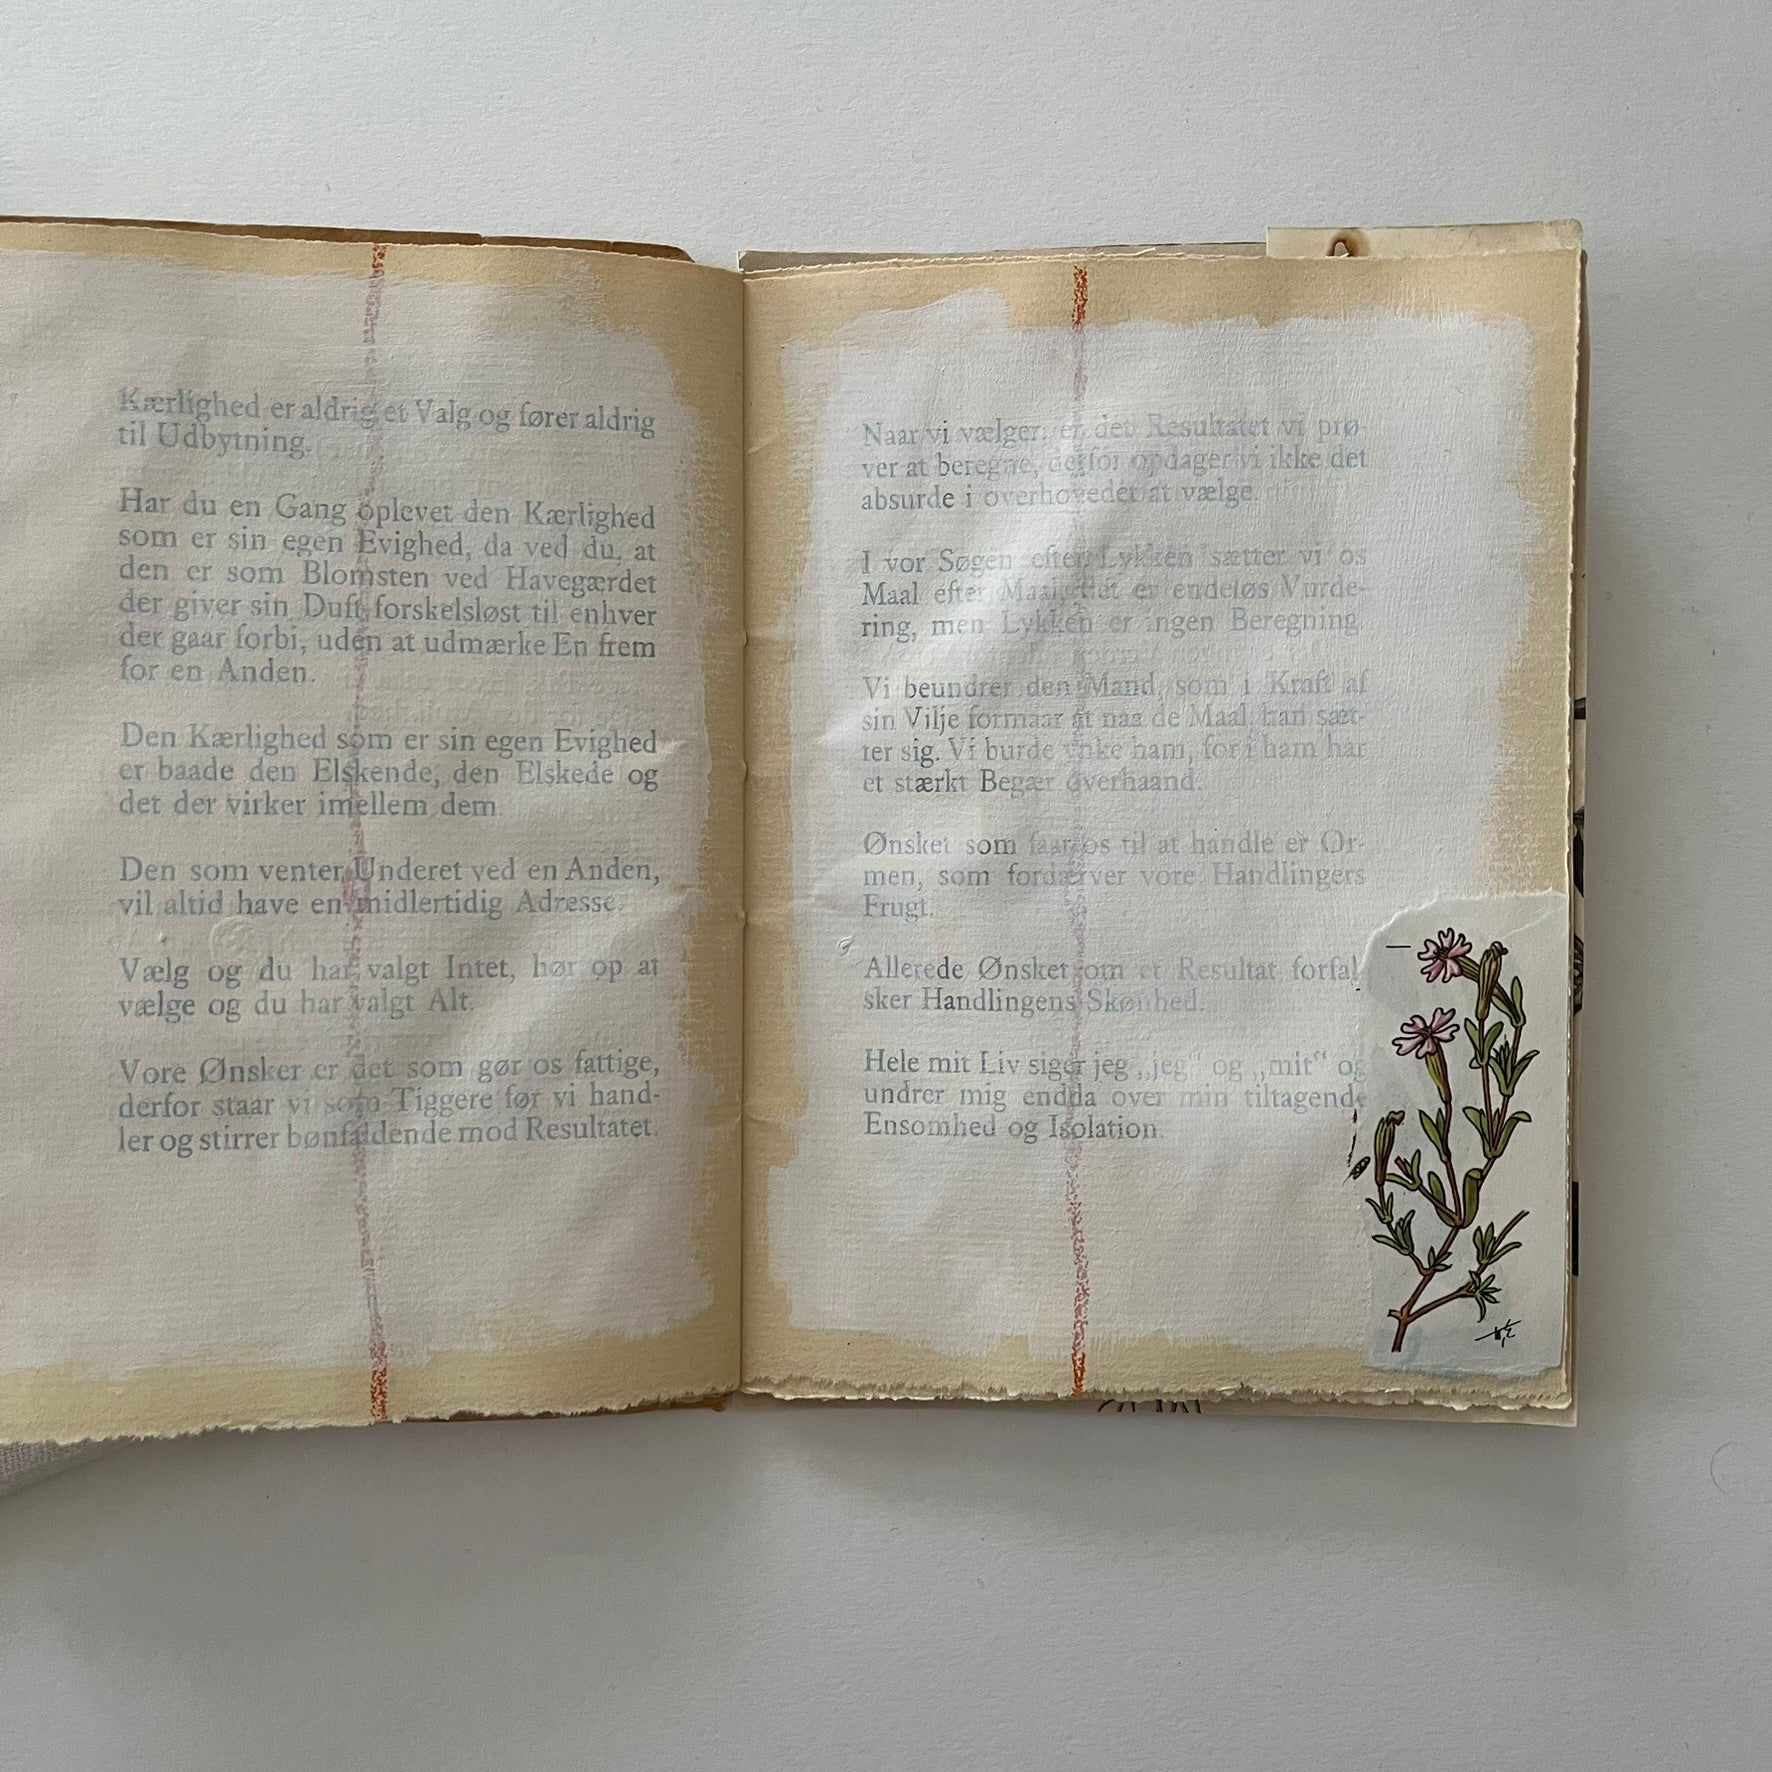 Kærlighed er aldrig et Valg og fører aldrig
til Udbytning.
Har du en Gang oplevet den Kærlighed
som er sin egen Evighed, da ved du, at
den er som Blomsten ved Havegærdet
der giver sin Duft forskelsløst til enhver
der gaar forbi, uden at udmærke En frem
for en Anden.
Den Kærlighed som er sin egen Evighed
er baade den Elskende, den Elskede og
det der virker imellem dem.
Den som venter Underet ved en Anden,
vil altid have en midlertidig Adresse.
Vælg og du har valgt Intet, hør op at
vælge og du har valgt Alt.
Vore Ønsker er det som gør os fattige,
derfor staar vi som Tiggere før vi hand-
ler og stirrer bønfaldende mod Resultatet.
Naar vi vælger, er det Resultatet vi prø-
ver at beregne, derfor opdager vi ikke det
absurde i overhovedet at vælge.
I vor Søgen efter Lykken sætter vi os
Maal efter Maal, det er endeløs Vurde-
ring, men Lykken er ingen Beregning.
Vi beundrer den Mand, som i Kraft af
sin Vilje formaar at naa de Maal, han sæt-
ter sig. Vi burde ynke ham, for i ham har
et stærkt Begær overhaand.
Ønsket som faar os til at handle er Or-
men, som fordærver vore Handlingers
Frugt.
Allerede Ønsket om et Resultat forfal-
sker Handlingens Skønhed.
Hele mit Liv siger jeg „jeg“ og „mit“ og
undrer mig endda over min tiltagende
Ensomhed og Isolation.